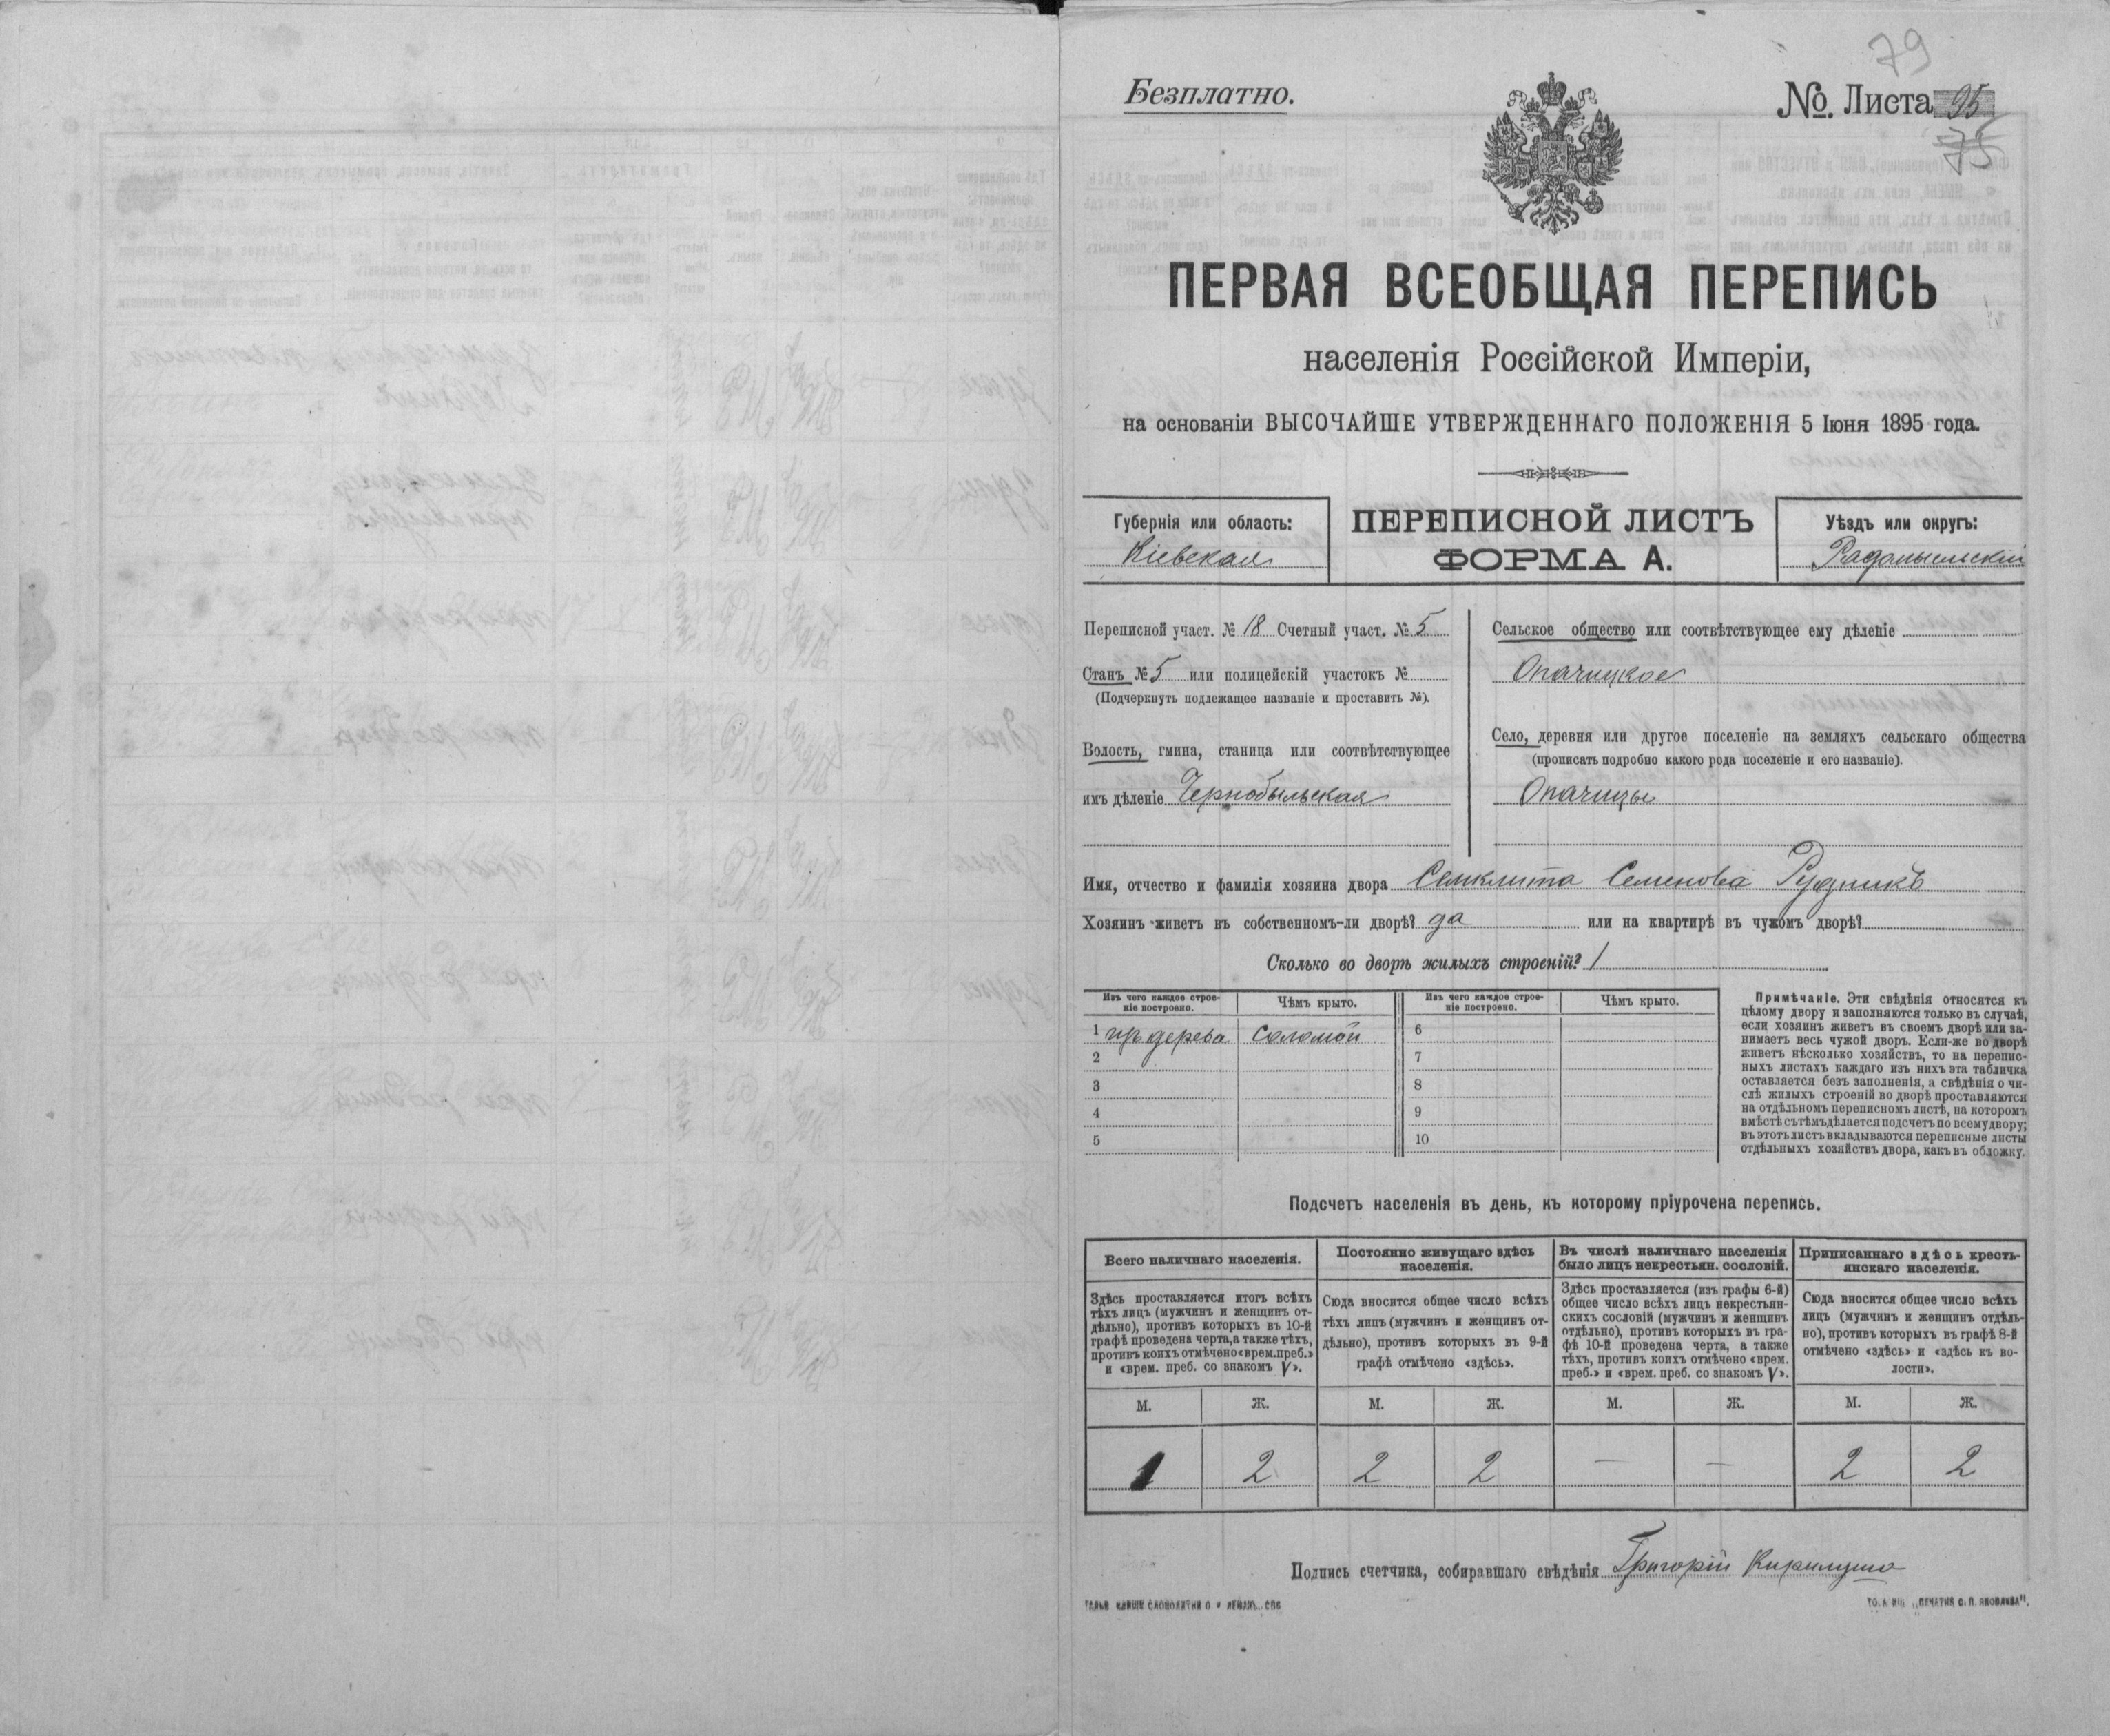 79
Безплатно.
№. Листа 95
75
ПЕРВАЯ ВСЕОБЩАЯ ПЕРЕПИСЬ
населенія Россійской Имперіи,
на основаніи ВЫСОЧАЙШЕ УТВЕРЖДЕННАГО ПОЛОЖЕНІЯ 5 Іюня 1895 года.
Губернія или область:
Кіевская
ПЕРЕПИСНОЙ ЛИСТЪ
ФОРМА А.
Уѣздъ или округъ:
Радомысльскій
Переписной участ. № 18 Счетный участ. № 5
Станъ № 5 или полицейскій участокъ №
(Подчеркнуть подлежащее названіе и проставить №).
Волость, гмина, станица или соотвѣтствующее
имъ дѣленіе Чернобыльская
Сельское общество или соотвѣтствующее ему дѣленіе
Опачицкое
Село, деревня или другое поселеніе на земляхъ сельскаго общества
(прописать подробно какого рода поселеніе и его названіе).
Опачицы
Имя, отчество и фамилія хозяина двора Семенова Рудникъ
Хозяинъ живетъ въ собственномъ-ли дворѣ? да или на квартирѣ въ чужомъ дворѣ?
Сколько во дворѣ жилыхъ строеній? 1
Изъ чего каждое строе-
ніе построено.
Чѣмъ крыто.
Изъ чего каждое строе-
ніе построено.
Чѣмъ крыто.
1 дерева соломой 6
2 7
3 8
4 9
5 10
Примѣчаніе. Эти свѣдѣнія относятся къ
цѣлому двору и заполняются только въ случаѣ,
если хозяинъ живетъ въ своемъ дворѣ или за-
нимаетъ весь чужой дворъ. Если-же во дворѣ
живетъ нѣсколько хозяйствъ, то на перепис-
ныхъ листахъ каждаго изъ нихъ эта табличка
оставляется безъ заполненія, а свѣдѣнія о чи-
слѣ жилыхъ строеній во дворѣ проставляются
на отдѣльномъ переписномъ листѣ, на которомъ
вмѣстѣ съ тѣмъ дѣлается подсчетъ по всему двору;
въ этотъ листъ вкладываются переписные листы
отдѣльныхъ хозяйствъ двора, какъ въ обложку.
Подсчетъ населенія въ день, къ которому пріурочена перепись.
Всего наличнаго населенія.
Здѣсь проставляется итогъ всѣхъ
тѣхъ лицъ (мужчинъ и женщинъ от-
дѣльно), противъ которыхъ въ 10-й
графѣ проведена черта, а также тѣхъ,
противъ коихъ отмѣчено «врем. преб.»
и «врем. преб. со знакомъ V».
Постоянно живущаго здѣсь
населенія.
Сюда вносится общее число всѣхъ
тѣхъ лицъ (мужчинъ и женщинъ от-
дѣльно), противъ которыхъ въ 9-й
графѣ отмѣчено «здѣсь».
Въ числѣ наличнаго населенія
было лицъ некрестьян. сословій.
Здѣсь проставляется (изъ графы 6-й)
общее число всѣхъ лицъ некрестьян-
скихъ сословій (мужчинъ и женщинъ
отдѣльно), противъ которыхъ въ гра-
фѣ 10-й проведена черта, а также
тѣхъ, противъ коихъ отмѣчено «врем.
преб.» и «врем. преб. со знакомъ V».
Приписаннаго здѣсь кресть-
янскаго населенія.
Сюда вносится общее число всѣхъ
лицъ (мужчинъ и женщинъ отдѣль-
но), противъ которыхъ въ графѣ 8-й
отмѣчено «здѣсь» и «здѣсь къ во-
лости».
М. Ж. М. Ж. М. Ж. М. Ж.
1 2 2 2 — — 2 2
Подпись счетчика, собиравшаго свѣдѣнія Григорій